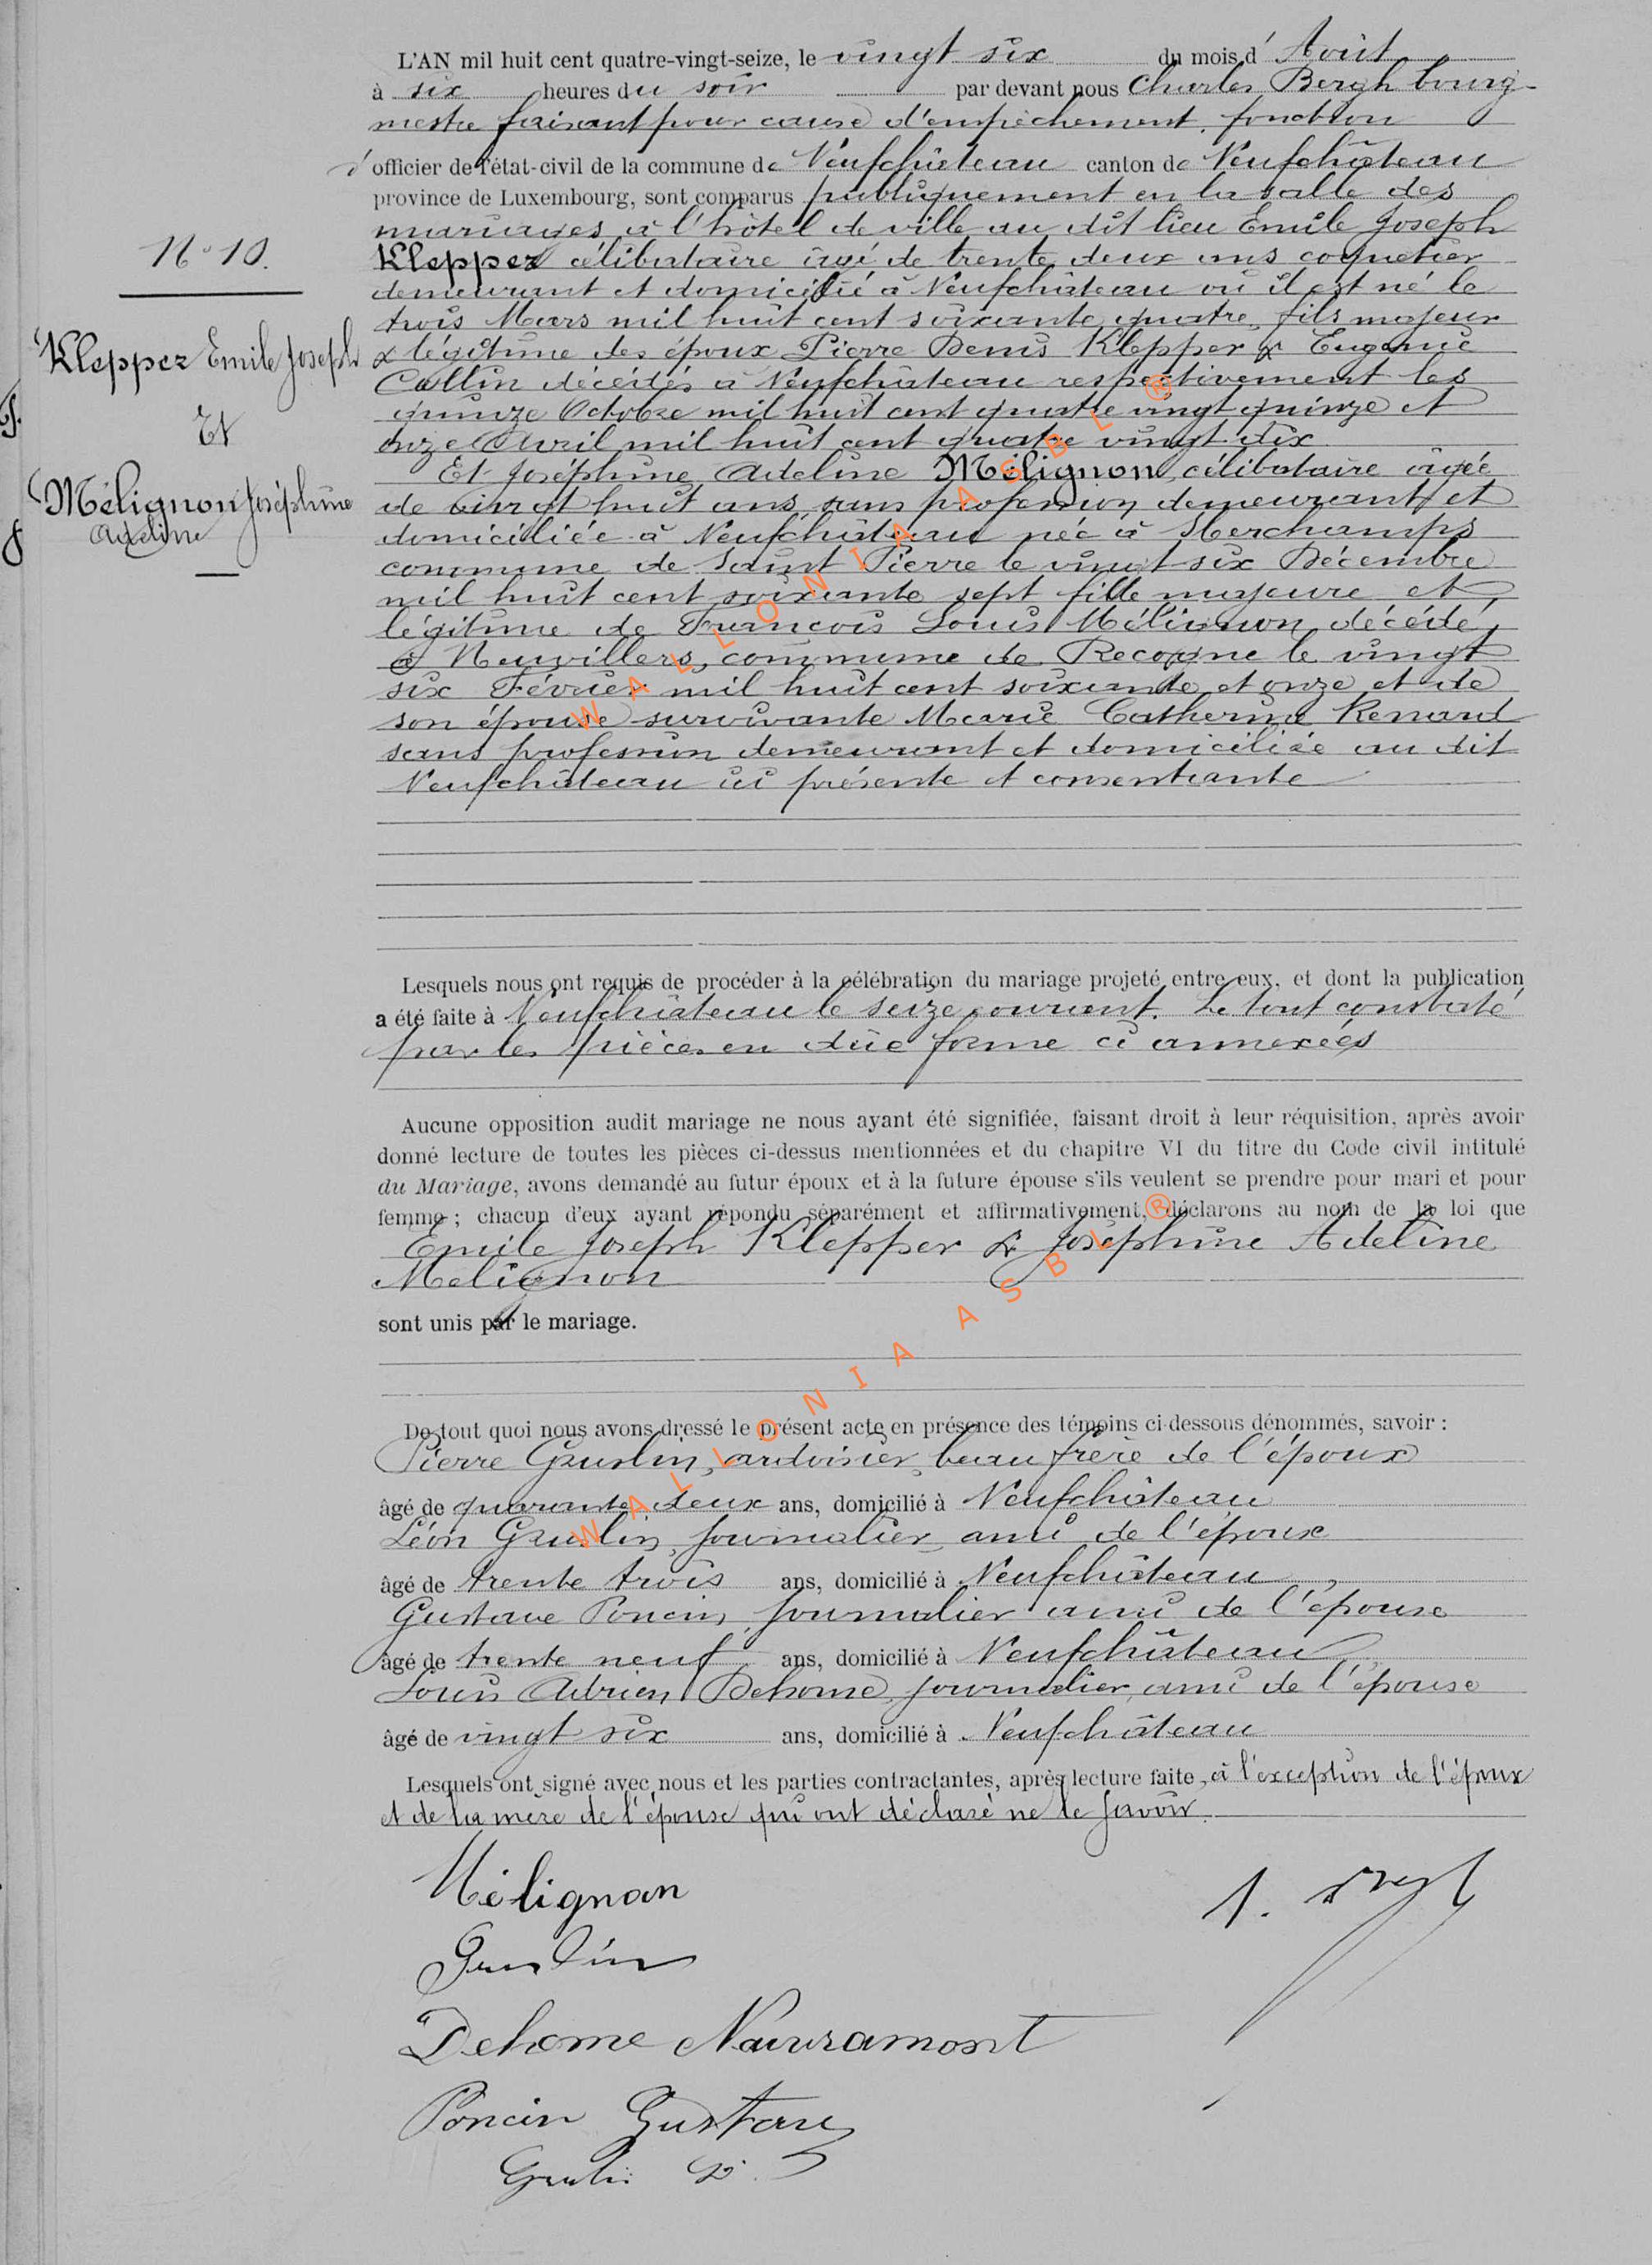 L'AN mil huit cent quatre-vingt-seize, le vingt six du mois d' Août
à six heures du soir par devant nous Charles Bergh bourg-
mestre faisant pour cause d'empêchement, fonction
d'officier de l'état-civil de la commune de Neufchâteau canton de Neufchâteau
province de Luxembourg, sont comparus publiquement en la salle des
mariages à l'hôtel de ville au dit lieu Emile Joseph
Klepper célibataire âgé de trente deux ans coquetier
demeurant et domicilié à Neufchâteau où il est né le
trois Mars mil huit cent soixante quatre, fils majeur
& légitime des époux Pierre Denis Klepper & Eugenie
Collin décédés à Neufchâteau respectivement les
quinze Octobre mil huit cent quatre vingt quinze et
onze Avril mil huit cent quatre vingt dix
Et Joséphine Adeline Mélignon, célibataire âgée
de vingt huit ans sans profession demeurant et
domiciliée à Neufchâteau née à Sberchamps
commune de Saint Pierre le vingt-six Décembre
mil huit cent soixante sept fille majeure et
légitime de François Louis Mélignon décédé
à Neuvillers, commune de Recogne le vingt
six Février mil huit cent soixante et onze et de
son épouse survivante Marie Catherine Renard
sans profession demeurant et domiciliée au dit
Neufchâteau ici présente et consentante
N° 10.
Klepper Emile Joseph
Et
Mélignon Joséphine
Adeline
Lesquels nous ont requis de procéder à la célébration du mariage projeté entre eux, et dont la publication
a été faite à Neufchâteau le seize courant. Le tout constaté
par les pièces en dûe forme ci annexées
Aucune opposition audit mariage ne nous ayant été signifiée, faisant droit à leur réquisition, après avoir
donné lecture de toutes les pièces ci-dessus mentionnées et du chapitre VI du titre du Code civil intitulé
du Mariage, avons demandé au futur époux et à la future épouse s'ils veulent se prendre pour mari et pour
femme ; chacun d'eux ayant répondu séparément et affirmativement, déclarons au nom de la loi que
Emile Joseph Klepper & Joséphine Adeline
Mélignon
sont unis par le mariage.
De tout quoi nous avons dressé le présent acte en présence des témoins ci-dessous dénommés, savoir :
Pierre Guslin, ardoisier, beau frère de l'époux
âgé de quarante deux ans, domicilié à Neufchâteau
Léon journalier ami de l'époux
âgé de trente trois ans, domicilié à Neufchâteau
Gustave Poncin, journalier ami de l'épouse
âgé de trente neuf ans, domicilié à Neufchâteau
Louis Adrien Dehome, journalier, ami de l'épouse
âgé de vingt six ans, domicilié à Neufchâteau
Lesquels ont signé avec nous et les parties contractantes, après lecture faite, à l'exception de l'époux
et de la mère de l'épouse qui ont déclaré ne le savoir.
Mélignon
Dehome
Poncin Gustave
WALLONIA ASBL ®
WALLONIA ASBL ®